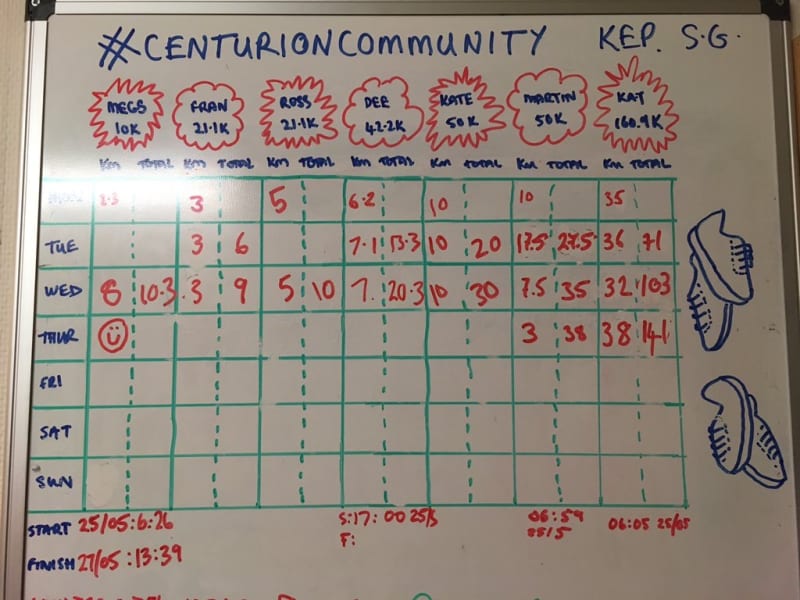 #CENTURIONCOMMUNITY KEP. S.G.
MEGS FRAN ROSS DEE KATE MARTIN KAT
10K 21.1K 21.1K 42.2K 50K 50K 160.9K
KM TOTAL KM TOTAL KM TOTAL KM TOTAL KM TOTAL KM TOTAL KM TOTAL
2.3 3 5 6.2 10 10 35
TUE 3 6 7.1 13.3 10 20 17.5 27.5 36 71
WED 8 10.3 3 9 5 10 7. 20.3 10 30 7.5 35 32 103
THUR 3 38 38 141
FRI
SAT
SUN
START 25/05:6:26 S:17:00 25/5 06:59 06:05 25/05
25/5
FINISH 27/05:13:39 F: